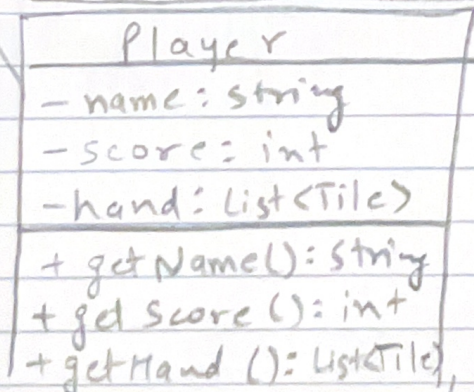 Player
- name: string
- score: int
- hand: List<Tile>
+ getName(): string
+ getScore(): int
+ getHand (): List<Tile>